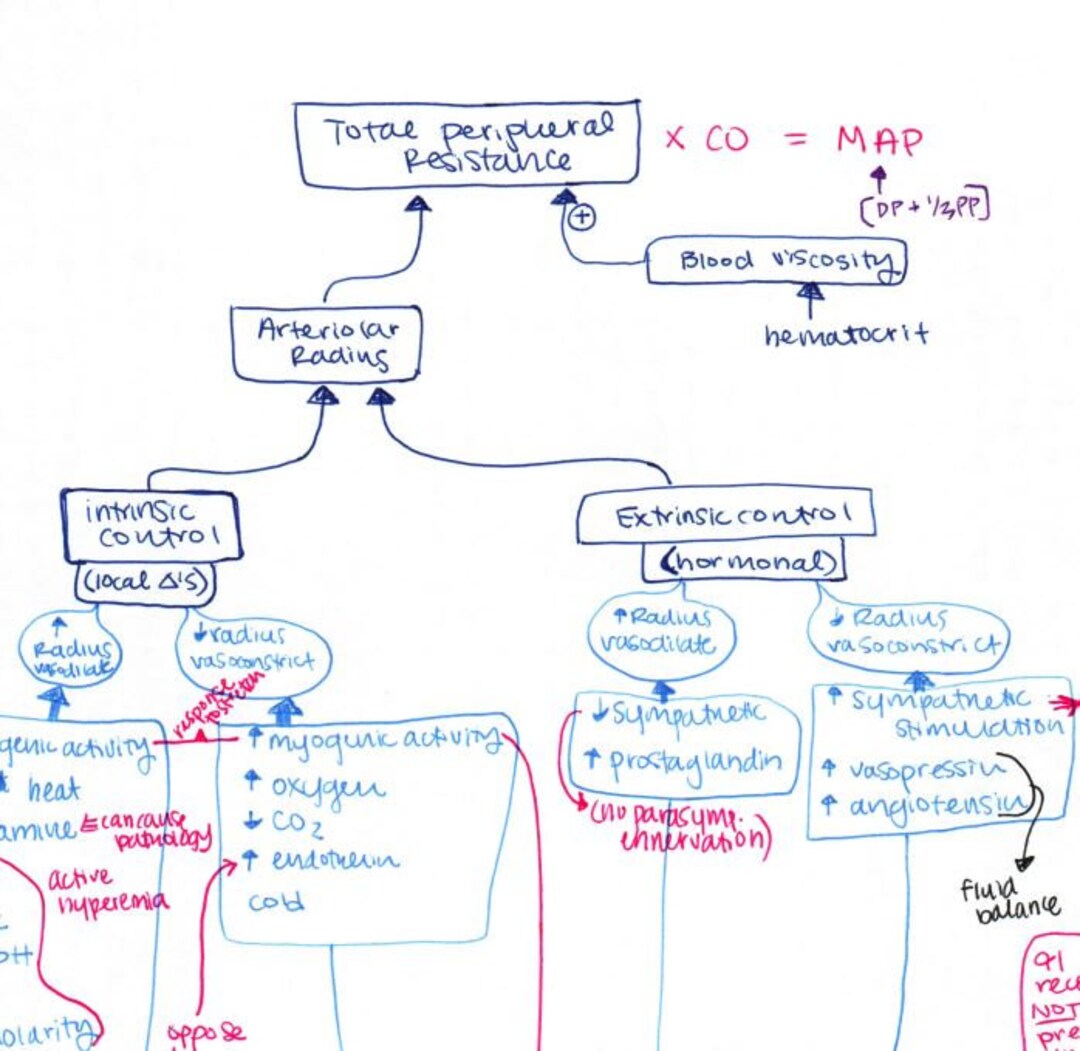 Total peripheral
Resistance
x CO = MAP
[DP + 1/3 PP]
+
Blood viscosity
hematocrit
Arteriolar
Radius
intrinsic
control
(local Δ's)
Extrinsic control
(hormonal)
↑
Radius
vasodilate
↓ radius
vasoconstrict
↑ Radius
vasodilate
↓ Radius
vasoconstrict
response
genic activity
heat
amine
can cause
pathology
active
hyperemia
olarity
↑ myogenic activity
↑ oxygen
↓ CO2
↑ endothelin
cold
oppose
↓ sympathetic
↑ prostaglandin
(no parasymp.
innervation)
↑ sympathetic
stimulation
↑ vasopressin
↑ angiotensin
fluid
balance
α1
rec
NOT
pre